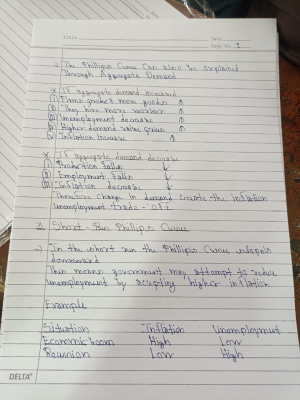 Title
Date
Page No. 2
→ The Phillips Curve Can also be explained
through Aggregate Demand
* If aggregate demand increased
(I) Firms product more goods ↑
(II) They hire more worker ↑
(III) Unemployment decrease ↑
(IV) Higher demand raise prices ↑
(V) Inflation increase ↑
* If aggregate demand decrease
(I) Production falls ↓
(II) Employment falls ↓
(III) Inflation decrease ↓
Therefore change in demand create the inflation
unemployment trade-off.
3. Short-Run Phillips Curve
→ In the short run the Phillips Curve
downward
This means government may attempt to reduce
unemployment by accepting higher inflation
Example
Situation Inflation Unemployment
Economic boom High Low
Low High
DELTA